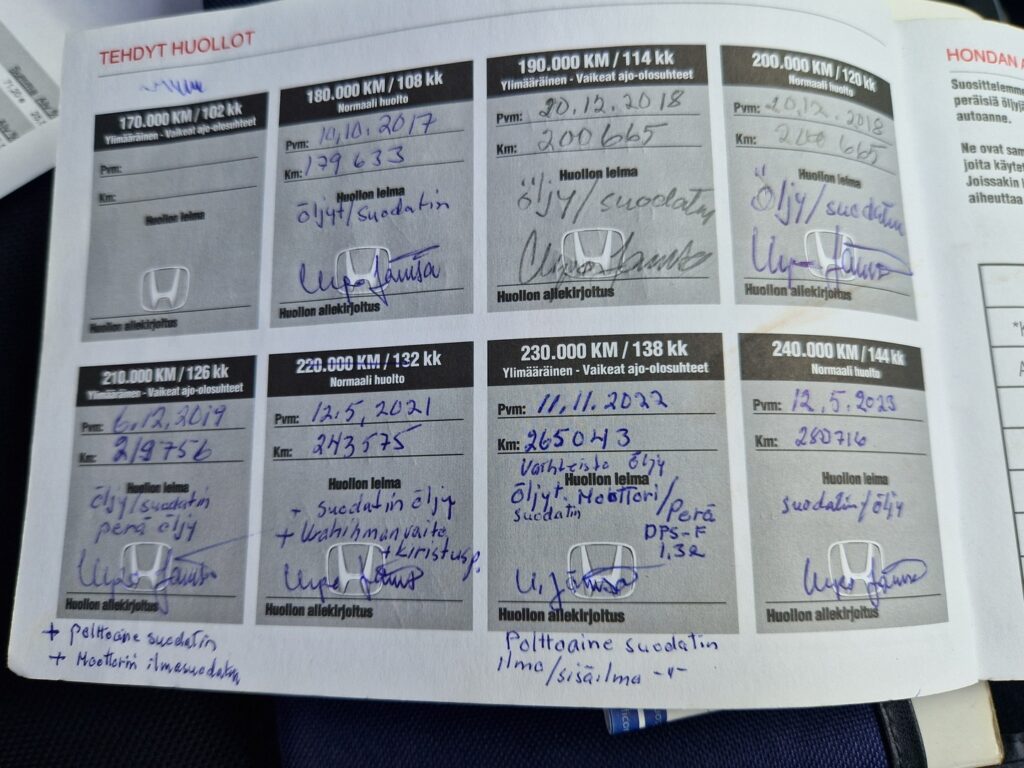 TEHDYT HUOLLOT
170.000 KM / 102 kk
Ylimääräinen - Vaikeat ajo-olosuhteet
Pvm:
Km:
Huollon leima
Huollon allekirjoitus
180.000 KM / 108 kk
Normaali huolto
Pvm: 10.10.2017
Km: 179633
Huollon leima
öljyt/suodatin
Huollon allekirjoitus
190.000 KM / 114 kk
Ylimääräinen - Vaikeat ajo-olosuhteet
Pvm: 20.12.2018
Km: 200665
Huollon leima
öljy/suodatin
Huollon allekirjoitus
200.000 KM / 120 kk
Normaali huolto
Pvm: 20.12.2018
Km: 200665
Huollon leima
Öljy/suodatin
Huollon allekirjoitus
210.000 KM / 126 kk
Ylimääräinen - Vaikeat ajo-olosuhteet
Pvm: 6.12.2019
Km: 219756
Huollon leima
öljy/suodatin
perä öljy
Huollon allekirjoitus
+ polttoaine suodatin
+ Moottorin ilmasuodatin
220.000 KM / 132 kk
Normaali huolto
Pvm: 12.5.2021
Km: 243575
Huollon leima
+ suodatin öljy
+ Urahihnan vaihto
+ kiristysp.
Huollon allekirjoitus
230.000 KM / 138 kk
Ylimääräinen - Vaikeat ajo-olosuhteet
Pvm: 11.11.2022
Km: 265043
Vaihteisto öljy
Huollon leima
öljyt. Moottori/Perä
suodatin
DPS-F
Huollon allekirjoitus
Polttoaine suodatin
ilma/sisäilma -"-
240.000 KM / 144 kk
Normaali huolto
Pvm: 12.5.2023
Km: 280716
Huollon leima
suodatin/öljy
Huollon allekirjoitus
HONDAN
Suosittelemme
peräisiä öljyjä
autoanne.
Ne ovat
joita
Joissakin
aiheuttaa